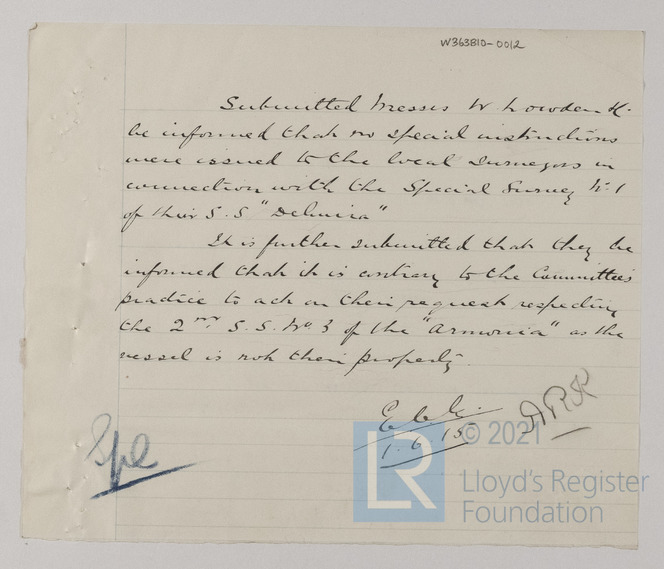 W363810-0012
Submitted Messrs W Lowden &c
be informed that no special instructions
were issued to the local surveyors in
connection with the Special Survey No 1
of their S.S "Delmira"
It is further submitted that they be
informed that it is contrary to the Committee's
practice to act on their request respecting
the 2nd S.S. No 3 of the "Armonia" as the
vessel is not their property.
1.6.15
© 2021
LR
Lloyd's Register
Foundation